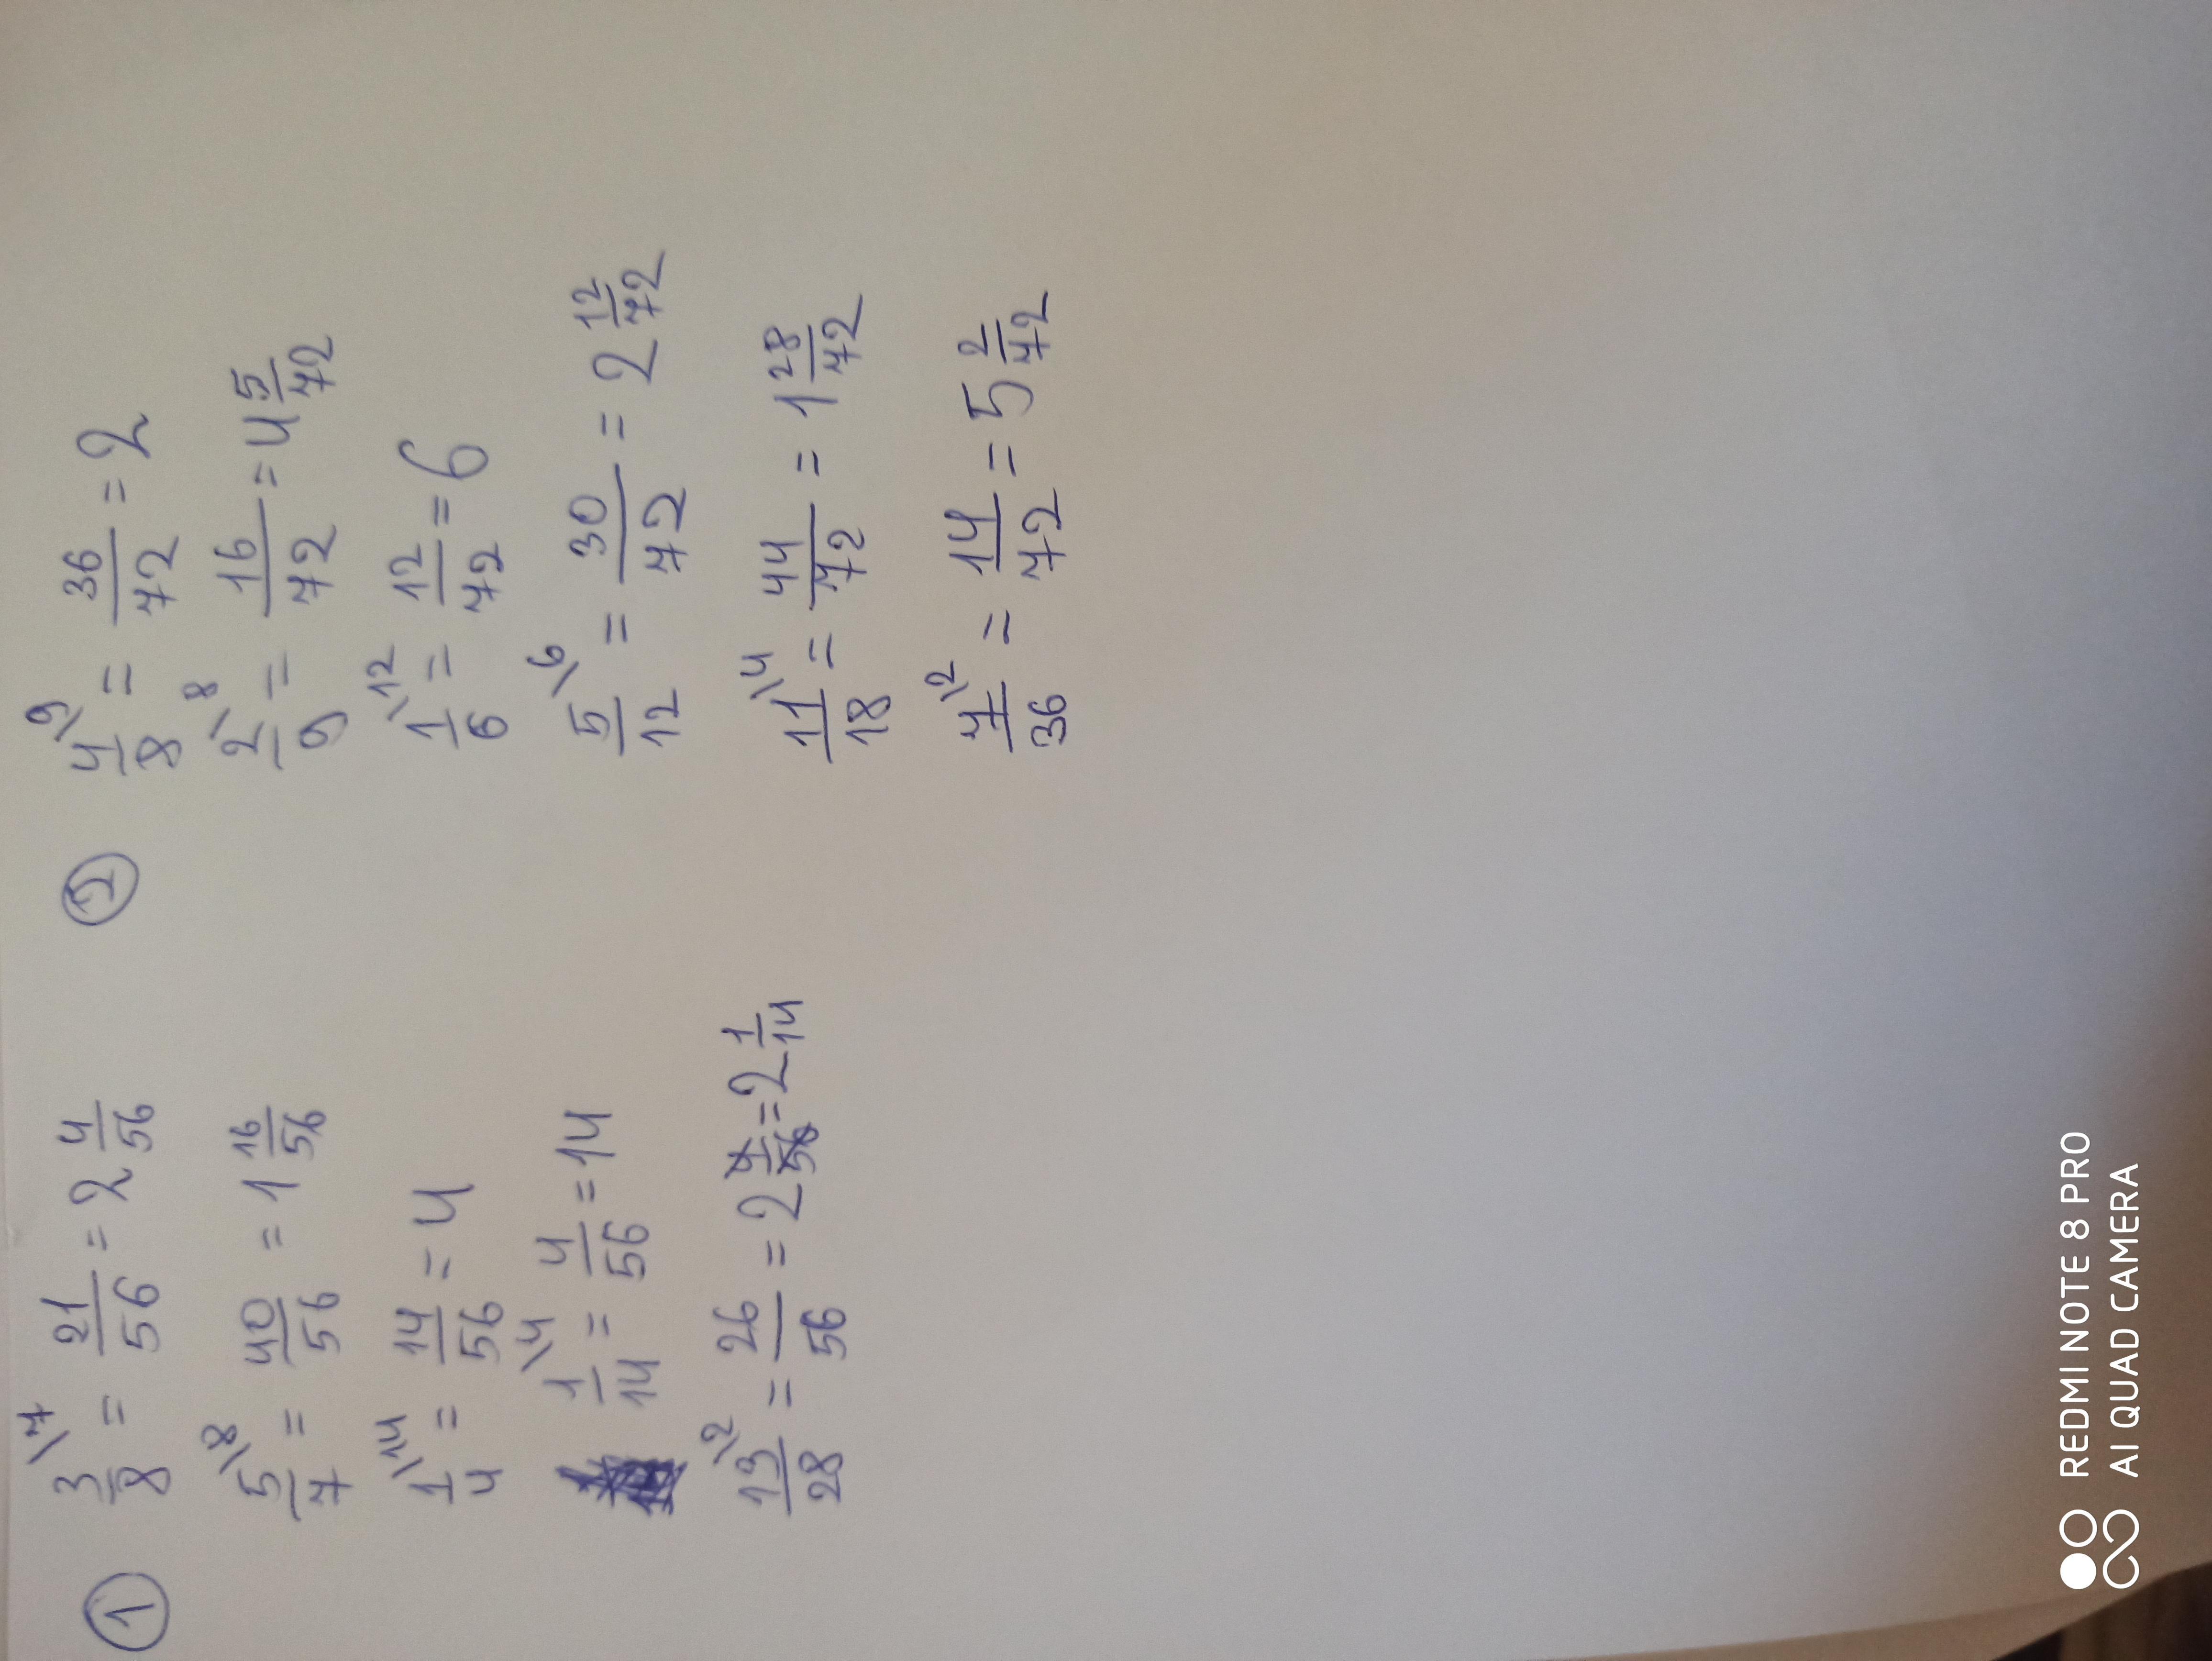 ① 3/8 \7 = 21/56 = 2 4/56
5/7 \8 = 40/56 = 1 16/56
1/4 \14 = 14/56 = 4
1/14 \4 = 4/56 = 14
13/28 \2 = 26/56 = 2 4/56 = 2 1/14
② 4/8 \9 = 36/72 = 2
2/9 \8 = 16/72 = 4 5/72
1/6 \12 = 12/72 = 6
5/12 \6 = 30/72 = 2 12/72
11/18 \4 = 44/72 = 1 28/72
7/36 \2 = 14/72 = 5 2/72
REDMI NOTE 8 PRO
AI QUAD CAMERA